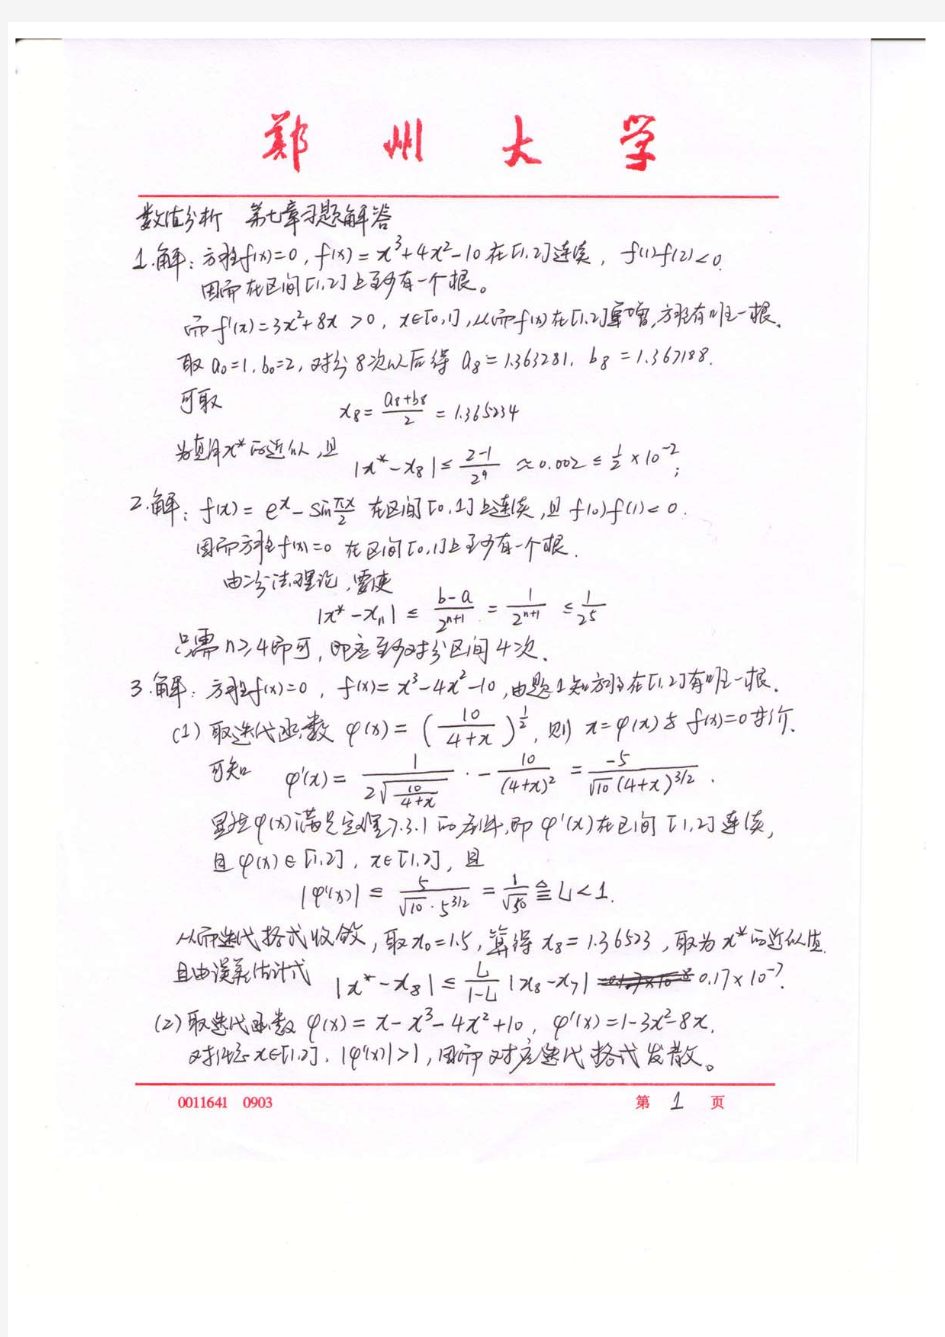 郑州大学
数值分析 第七章习题解答
1.解：方程f(x)=0, f(x)=x³+4x²-10 在[1,2]连续, f(1)f(2)<0.
因而在区间[1,2]上至少有一个根。
而f'(x)=3x²+8x >0, x∈[0,1], 从而f(x)在[1,2]单增,方程有唯一根.
取 a₀=1, b₀=2, 对分8次以后得 a₈=1.363281, b₈=1.367188.
可取 x₈ = (a₈+b₈)/2 = 1.365234
为真解x*的近似,且 |x*-x₈| ≤ (2-1)/2⁹ ≈ 0.002 ≤ 1/2 × 10⁻²;
2.解：f(x)= eˣ - sin πx/2 在区间[0,1]上连续,且 f(0)f(1)<0.
因而方程f(x)=0 在区间[0,1]上至少有一个根.
由二分法理论,要使
|x*-xₙ| ≤ (b-a)/2ⁿ⁺¹ = 1/2ⁿ⁺¹ ≤ 1/2⁵
只需n≥4即可, 即应至少对分区间4次.
3.解：方程f(x)=0, f(x)=x³-4x²-10,由题1知方程在[1,2]有唯一根.
(1) 取迭代函数 φ(x)=(10/(4+x))^(1/2), 则 x=φ(x)与 f(x)=0等价.
可知 φ'(x)= 1/(2√(10/(4+x))) · -10/(4+x)² = -5/(√10 (4+x)^(3/2)).
显然φ(x)满足定理7.3.1的条件,即 φ'(x)在区间[1,2]连续,
且φ(x)∈[1,2], x∈[1,2], 且
|φ'(x)| ≤ 5/(√10·5^(3/2)) = 1/√50 ≙ L<1.
从而迭代格式收敛,取x₀=1.5, 算得 x₈=1.36523, 取为x*的近似值.
且由误差估计式 |x*-x₈| ≤ L/(1-L) |x₈-x₇| 0.17×10⁻⁷.
(2) 取迭代函数 φ(x)=x-x³-4x²+10, φ'(x)=1-3x²-8x.
对任意x∈[1,2], |φ'(x)|>1, 因而对应迭代格式发散。
0011641 0903 第 1 页